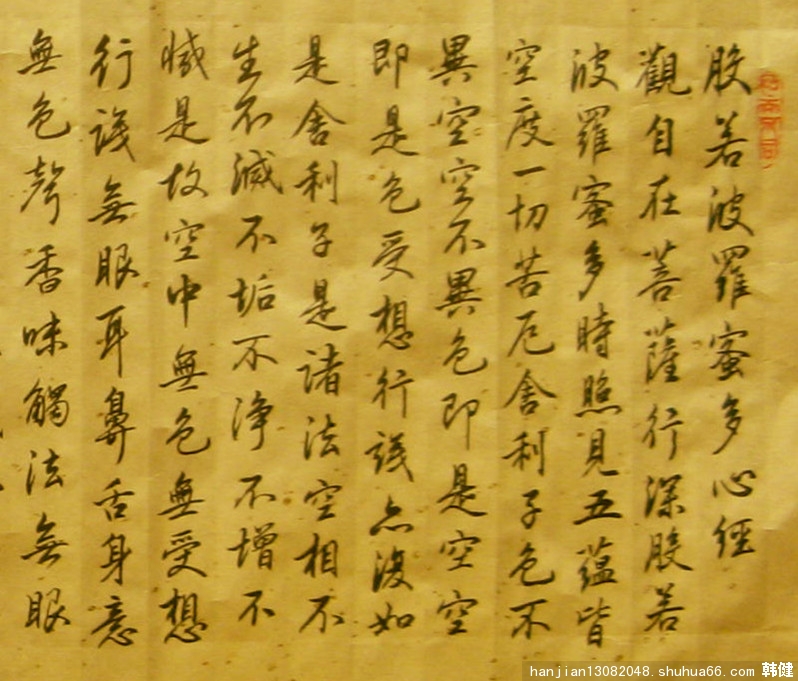 般若波羅蜜多心經
觀自在菩薩行深般若
波羅蜜多時照見五蘊皆
空度一切苦厄舍利子色不
異空空不異色即是空空
即是色受想行識亦復如
是舍利子是諸法空相不
生不滅不垢不淨不增不
減是故空中無色無受想
行識無眼耳鼻舌身意
無色聲香味觸法無眼
hanjian13082048.shuhua66.com 韩健